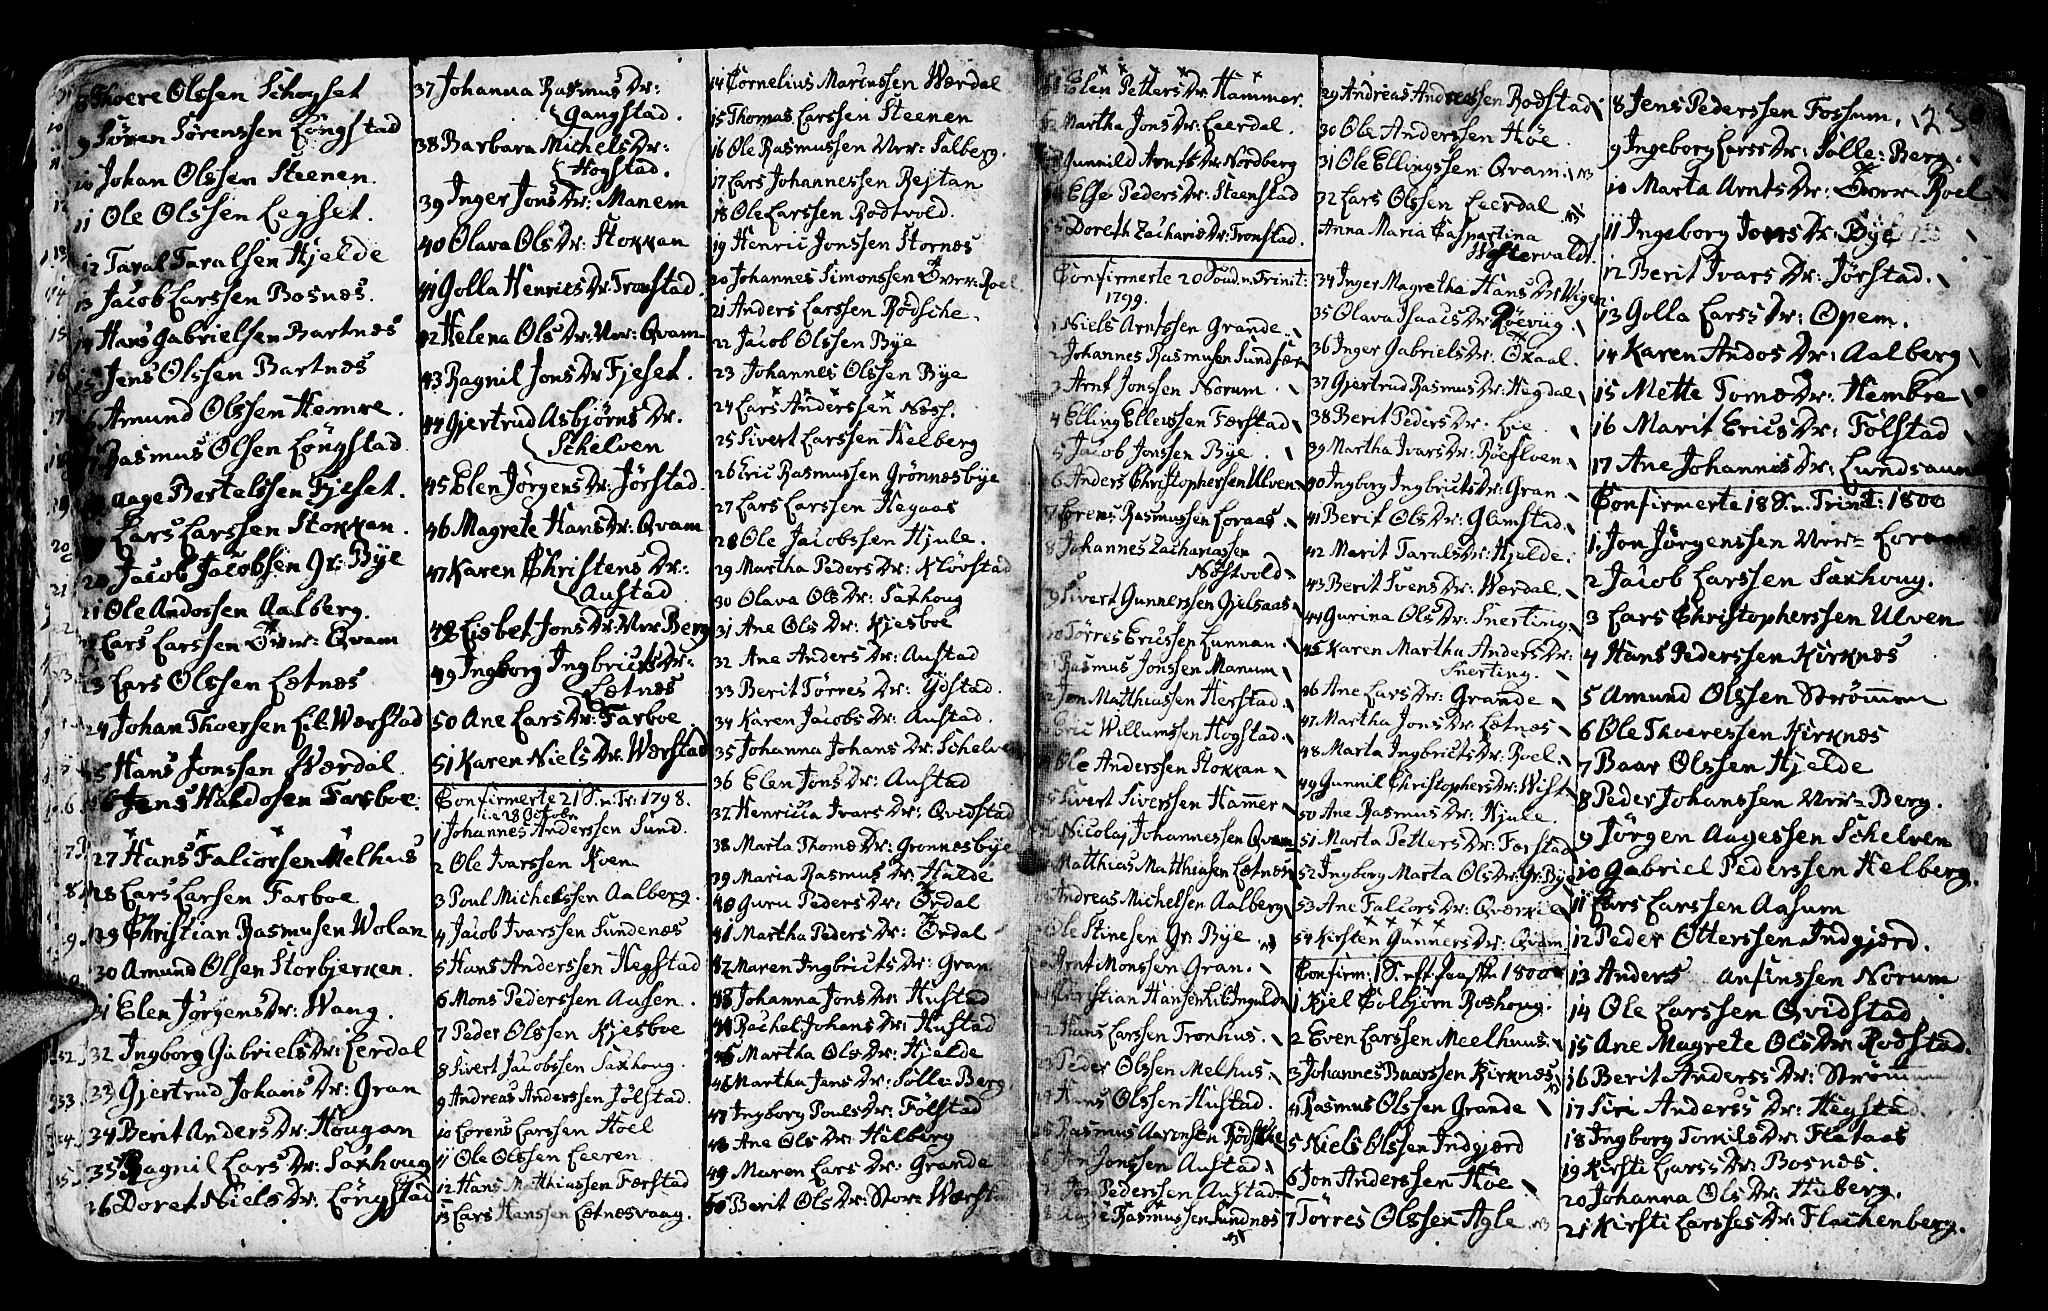 8 Thoere Olssen Schogset
9 Søren Sørenssen Løngstad
10 Johan Olssen Steenen.
11 Ole Olssen Legset.
12 Taral Taralsen Hjelde
13 Jacob Larssen Bosnæs.
14 Hans Gabrielsen Bartnæs
15 Jens Olssen Bartnæs
16 Amund Olssen Hemre.
17 Rasmus Olsen Løngstad
Aage Bertelssen Fjeset.
Lars Larssen Stokkan.
20 Jacob Jacobsen Gr: Bÿe
21 Ole Andossen Aalberg.
Lars Larssen Øvr: Qvam
23 Lars Olssen Lætnæs
24 Johan Thoersen Lil. Wærstad
25 Hans Jonssen Værdal.
26 Jens Haldosen Farboe.
27 Hans Falcorsen Melhus
28 Lars Larsen Farboe
29 Christian Rasmusen Wolan
30 Amund Olsen Storbjerken.
31 Elen Jørgens Dr: Wang.
32 Ingborg Gabriels Dr: Lerdal
33 Gjertrud Johans Dr: Gran
34 Berit Anders Dr: Hougan
35 Ragnil Lars Dr: Saxhoug
36 Doret Niels Dr: Løngstad
37 Johanna Rasmus Dr:
Gangstad.
38 Barbara Michels Dr:
Hogstad.
39 Inger Jons Dr: Manem
40 Olava Ols Dr: Stokkan
41 Golla Henrics Dr: Tronstad.
42 Helena Ols Dr: Nrr: Qvam
43 Ragnil Jons Dr Fjeset.
44 Gjertrud Asbjørns Dr.
Schelven
45 Elen Jørgens Dr: Jørstad.
46 Magrete Hans Dr: Qvam
47 Karen Christens Dr:
Austad
48 Lisbet Jons Dr: Nrr Berg
49 Ingborg Ingbricts Dr:
Lætnæs
50 Ane Lars Dr: Farboe
51 Karen Niels Dr: Wærstad
Confirmerte 21 S. n. Tr: 1798.
i.e 28 Octobr
1 Johannes Anderssen Sund.
2 Ole Ivarssen Kven
3 Poul Michelssen Aalberg.
4 Jacob Ivarssen Sundenæs
5 Hans Anderssen Hegstad
6 Mons Pederssen Ausen.
7 Peder Olssen Kjesboe
8 Sivert Jacobssen Saxhoug.
9 Andreas Anderssen Jølstad.
10 Lorens Larssen Hoel
11 Ole Olssen Leeren
12 Hans Matthiassen Færstad
13 Lars Hanssen Lætnæsvaag.
14 Cornelius Marcussen Værdal
15 Thomas Larssen Steenen
16 Ole Rasmussen Nrr: Salberg.
17 Lars Johannessen Restan
18 Ole Larssen Rodtvold.
19 Henric Jonssen Stornæs
20 Johannes Simonssen Øvr: Roel
21 Anders Larssen Rødsche.
22 Jacob Olssen Bÿe
23 Johannes Olssen Bÿe
24 Lars Anderssen Næss.
25 Sivert Larssen Helberg
26 Eric Rasmussen Grønnesbÿe
27 Lars Larssen Hegaas
28 Ole Jacobssen Hjule.
29 Martha Peders Dr: Kløvstad
30 Olava Ols Dr: Saxhoug
31 Ane Ols Dr: Kjesboe
32 Ane Anders Dr: Austad
33 Berit Tørres Dr: Ÿdstad.
34 Karen Jacobs Dr: Austad.
35 Johanna Johans Dr: Schelve
36 Elen Jons Dr: Austad
37 Henricca Ivars Dr: Qvidstad
38 Marta Thomæ Dr: Grønnesbÿe
39 Maria Rasmus Dr: Halde
40 Guru Peders Dr: Ørdal
41 Martha Peders Dr: Ørdal
42 Maren Ingbricts Dr: Gran
43 Johanna Jons Dr: Hustad
44 Rachel Johans Dr: Hustad
45 Martha Ols Dr: Hjelde
46 Martha Jens Dr: Solle: Berg
47 Ingborg Pouls Dr: Følstad
48 Ane Ols Dr: Helberg
49 Maren Lars Dr: Grande
50 Berit Ols Dr: Stor: Wærstad
51 Elen Petters Dr Hammer.
52 Martha Jons Dr: Leerdal.
53 Gunnild Arnts Dr: Nordberg
54 Else Peders Dr: Steenstad
55 Doreth Zachariæ Dr: Tronstad.
Confirmerte 20 Sønd. n. Trinit:
1799.
1 Niels Arntssen Grande.
2 Johannes Rasmusen Sundfær
3 Arnt Jonssen Norum.
4 Elling Ellevssen Færstad
5 Jacob Jonssen Bÿe.
6 Anders Christophersen Ulven
7 Lorens Rasmussen Loraas.
8 Johannes Zachariassen
Nøstvold
9 Sivert Gunnerssen Gjelsaas
10 Tørres Ericssen Lunnan.
11 Rasmus Jonssen Manum
12 Jon Matthiassen Herstad.
13 Eric Willumssen Hogstad.
14 Ole Anderssen Stokkan
15 Sivert Siverssen Hammer
16 Nicolaj Johannessen Qvam
17 Matthias Matthiasen Lætnæs
18 Andreas Michelsen Aalberg
19 Ole Stinesen Gr. Bÿe
20 Arnt Monssen Gran.
21 Christian Hansen Lil Inguld
22 Hans Larssen Tronhus.
23 Peder Olssen Melhus.
24 Hans Olssen Hustad.
25 Rasmus Aaronsen Rødsche
26 Jon Jonssen Austad
27 Jon Pederssen Austad
28 Aage Rasmussen Sundnæs
29 Andreas Andreassen Rodstad
30 Ole Anderssen Høe.
31 Ole Ellingssen Qvam.
32 Lars Olssen Leerdal
Anna Maria Caspartina
Westervaldt.
34 Inger Magretha Hans Dr Wigen
35 Olava Isaacs Dr Røeviig.
36 Inger Gabriels Dr: Øxaal.
37 Gjertrud Rasmus Dr: Hegdal
38 Berit Peders Dr: Lie.
39 Martha Ivars Dr: Røeflven.
40 Ingborg Ingbricts Dr: Gran
41 Berit Ols Dr: Glimstad.
42 Marit Tarals Dr: Hjelde.
43 Berit Svens Dr: Værdal.
44 Gurina Ols Dr: Snerting
45 Karen Martha Anders Dr:
Snerting.
46 Ane Lars Dr: Grande
47 Martha Jons Dr: Lætnæs
48 Marta Ingbricts Dr: Roel
49 Gunnil Christophers Dr: Wist
50 Ane Rasmus Dr: Hjule.
51 Marta Petters Dr: Færstad
52 Ingborg Marta Ols Dr: Gr: Bÿe
53 Ane Falcors Dr: Qværkil
54 Kirsten Gunners Dr: Qvam
Confirm: 1 S. eft. Paaske 1800
1 Kjel Colbjørn Roshoug.
2 Even Larssen Meelhuus.
3 Johannes Baarssen Kirknæs
4 Rasmus Olssen Grande
5 Niels Olssen Indgjærd
6 Jon Anderssen Høe
7 Tørres Olssen Agle
8 Jens Pederssen Fossum. 123
9 Ingeborg Larss Dr: Solle: Berg
10 Marta Arnts Dr: Øvr: Roel
11 Ingeborg Jons Dr: Bÿe
12 Berit Ivars Dr: Jørstad.
13 Golla Larss Dr: Opem.
14 Karen Andos Dr: Aalberg
15 Mette Tomæ Dr: Hembre
16 Marit Erics Dr: Følstad
17 Ane Johannis Dr: Lundsaun
Confirmerte 18 S. n. Trinit: 1800
1 Jon Jørgenssen Nrr: Loraas
2 Jacob Larssen Saxhoug.
3 Lars Christopherssen Ulven
4 Hans Pederssen Kirknæs
5 Amund Olssen Strømmen
6 Ole Thoeressen Kirknæs
7 Baar Olssen Hjelde
8 Peder Johanssen Nrr: Berg.
9 Jørgen Aagessen Schelven
10 Gabriel Pederssen Helberg.
11 Lars Larssen Aasum
12 Peder Otterssen Indgjærd.
13 Anders Anfinssen Norum
14 Ole Larssen Qvidstad
15 Ane Magrete Ols Dr. Rodstad.
16 Berit Anderss Dr: Strømm
17 Siri Anderss Dr: Hegstad.
18 Ingborg Tomils Dr: Flataas
19 Kirsti Larss Dr: Bosnæs.
20 Johanna Ols Dr: Huberg.
21 Kirsti Larsses Dr: Flackenberg.